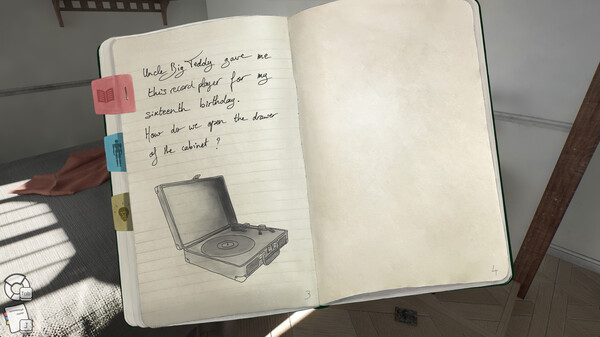 Uncle Big Teddy gave me
this record player for my
sixteenth birthday.
How do we open the drawer
of the cabinet ?
3
4